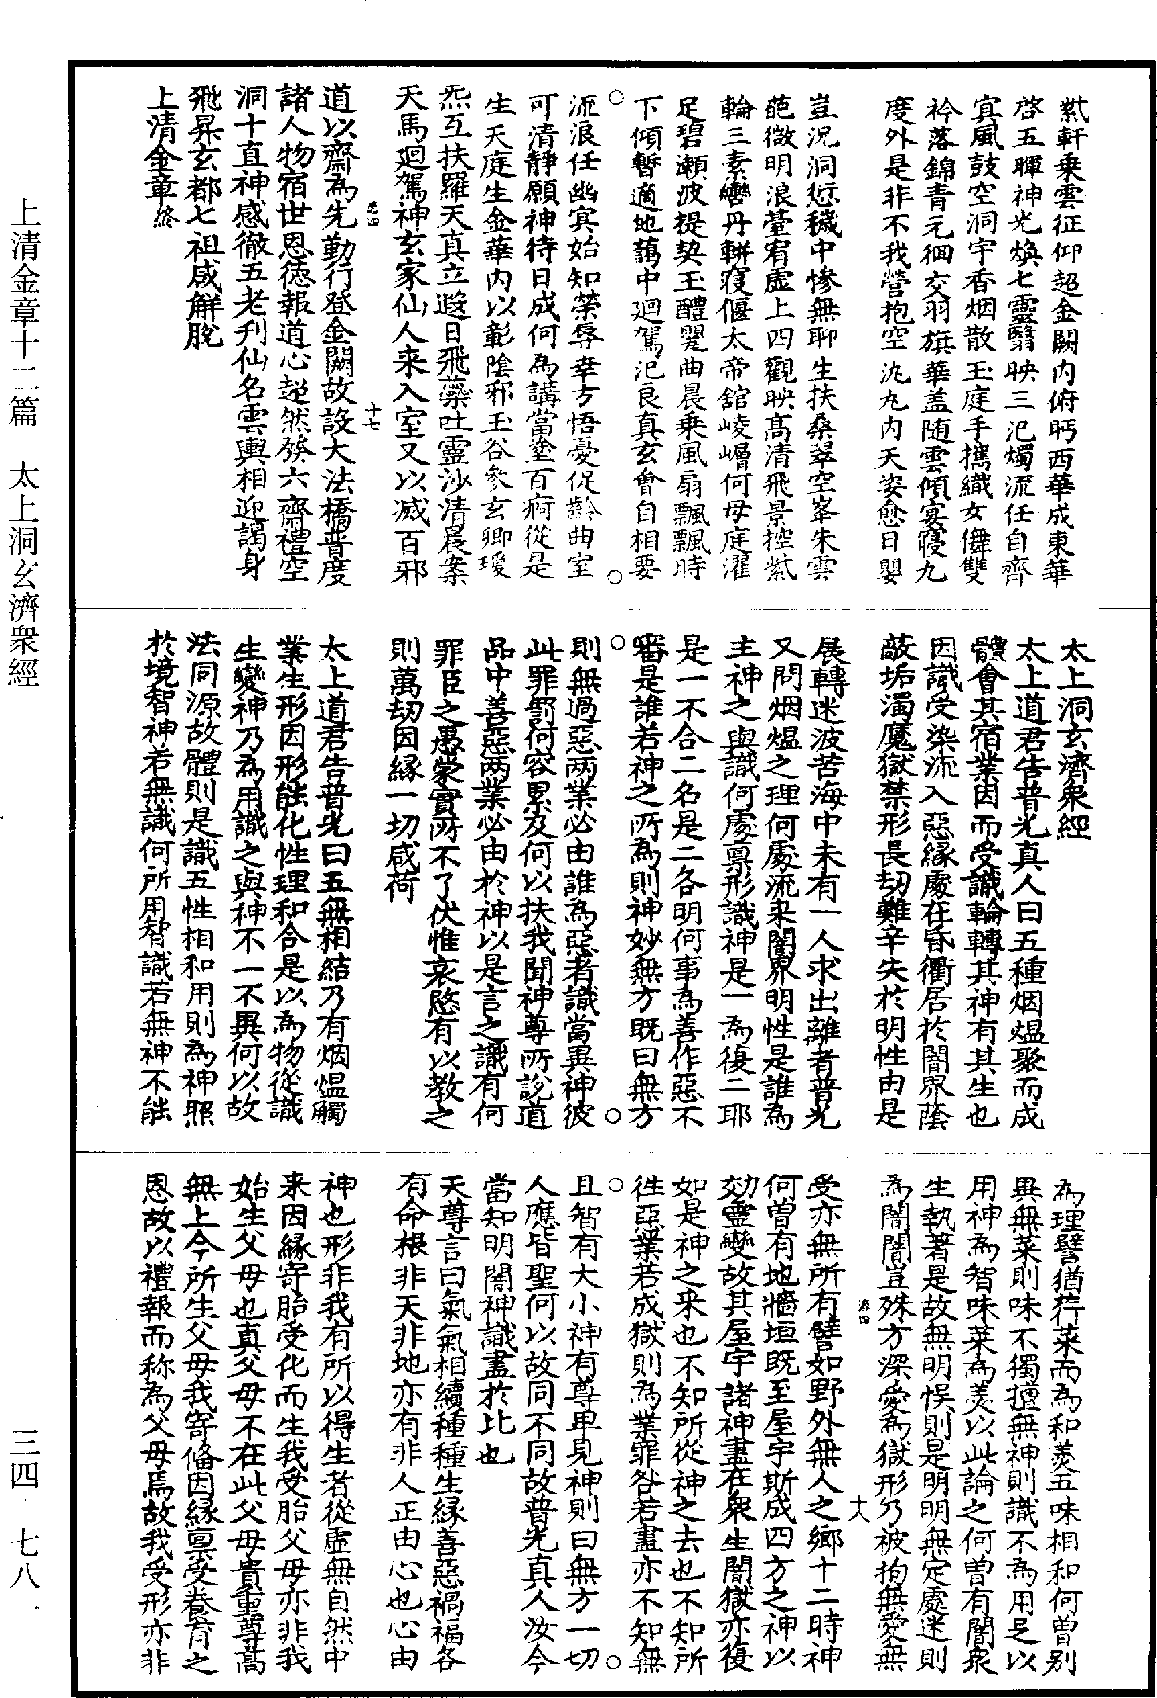 紫軒乗雲征仰超金闕内俯眄西華成東華
啓五暉神光煥七靈翳映三汜燭流任自齊
宜風鼓空洞宇香烟散玉庭手攜織女儛雙
衿落錦青元徊交羽旗華盖随雲傾宴寝九
度外是非不我營抱空沇丸内天姿愈日嬰
豈況洞近穢中慘無聊生扶桑翠空峯朱雲
葩微明浪臺宥虛上四觀映髙清飛景控紫
輪三素轡丹軿寝偃太帝舘崚嶒何母庭濯
足碧瀬波提契玉醴甖曲晨乗風扇飄飄時
下傾暫適地蕅中廻駕汜良真玄會自相要
流浪任幽宾始知榮辱幸方悟憂促齡曲室
可清靜願神待日成何為講當塗百痾從是
生天庭生金華内以彰陰邪玉谷參玄卿瓊
炁互扶羅天真立遊日飛藥吐靈沙清晨案
天馬廻駕神玄家仙人来入室又以减百邪
道以齋為先勤行登金闕故設大法橋普度
諸人物宿世恩德報道心超然發六齋禮空
洞十直神感徹五老刋仙名雲輿相迎謁身
飛昇玄都七祖咸解脫
上清金章終
太上洞玄濟衆經
太上道君告普光真人曰五種烟熅聚而成
體會其宿業因而受識輪轉其神有其生也
因識受染流入惡緣處在昏衢居於闇界蔭
蔽垢濁魔獄禁形長劫難辛失於明性由是
展轉迷波苦海中未有一人求出離者普光
又問烟熅之理何處流来闇界明性是誰為
主神之與識何處禀形識神是一為復二耶
是一不合二名是二各明何事為善作惡不
審是誰若神之所為則神妙無方既曰無方
則無過惡兩業必由誰為惡者識當異神彼
此罪罰何容累及何以扶我聞神尊所說道
品中善惡兩業必由於神以是言之識有何
罪臣之愚蒙實所不了伏惟哀慜有以教之
則萬劫因緣一切咸荷
太上道君告普光曰五無相結乃有烟熅觸
業生形因形能化性理和合是以為物從識
生變神乃為用識之與神不一不異何以故
法同源故體則是識五性相和用則為神照
於境智神若無識何所用智識若無神不能
為理譬猶擣菜而為和羹五味相和何曾别
異無菜則味不獨擅無神則識不為用是以
用神為智味菜為羹以此論之何曾有闇衆
生執著是故無明悞則是明明無定處迷則
為闇闇豈殊方深愛為獄形乃被拘無愛無
受亦無所有譬如野外無人之鄉十二時神
何曽有地牆垣既至屋宇斯成四方之神以
効靈變故其屋宇諸神盡在衆生闇獄亦復
如是神之来也不知所從神之去也不知所
徃惡業若成獄則為業罪咎若盡亦不知無
且智有大小神有尊卑見神則曰無方一切
人應皆聖何以故同不同故普光真人汝今
當知明闇神識盡於比也
天尊言曰氣氣相續種種生緣善惡禍福各
有命根非天非地亦有非人正由心也心由
神也形非我有所以得生者從虛無自然中
来因緣寄胎受化而生我受胎父母亦非我
始生父母也真父母不在此父母貴重尊高
無上今所生父母我寄備因緣禀受養育之
恩故以禮報而称為父母焉故我受形亦非
悲四
十七
悲四
十八
上清金章十二篇　太上洞玄濟衆經
三四·七八一